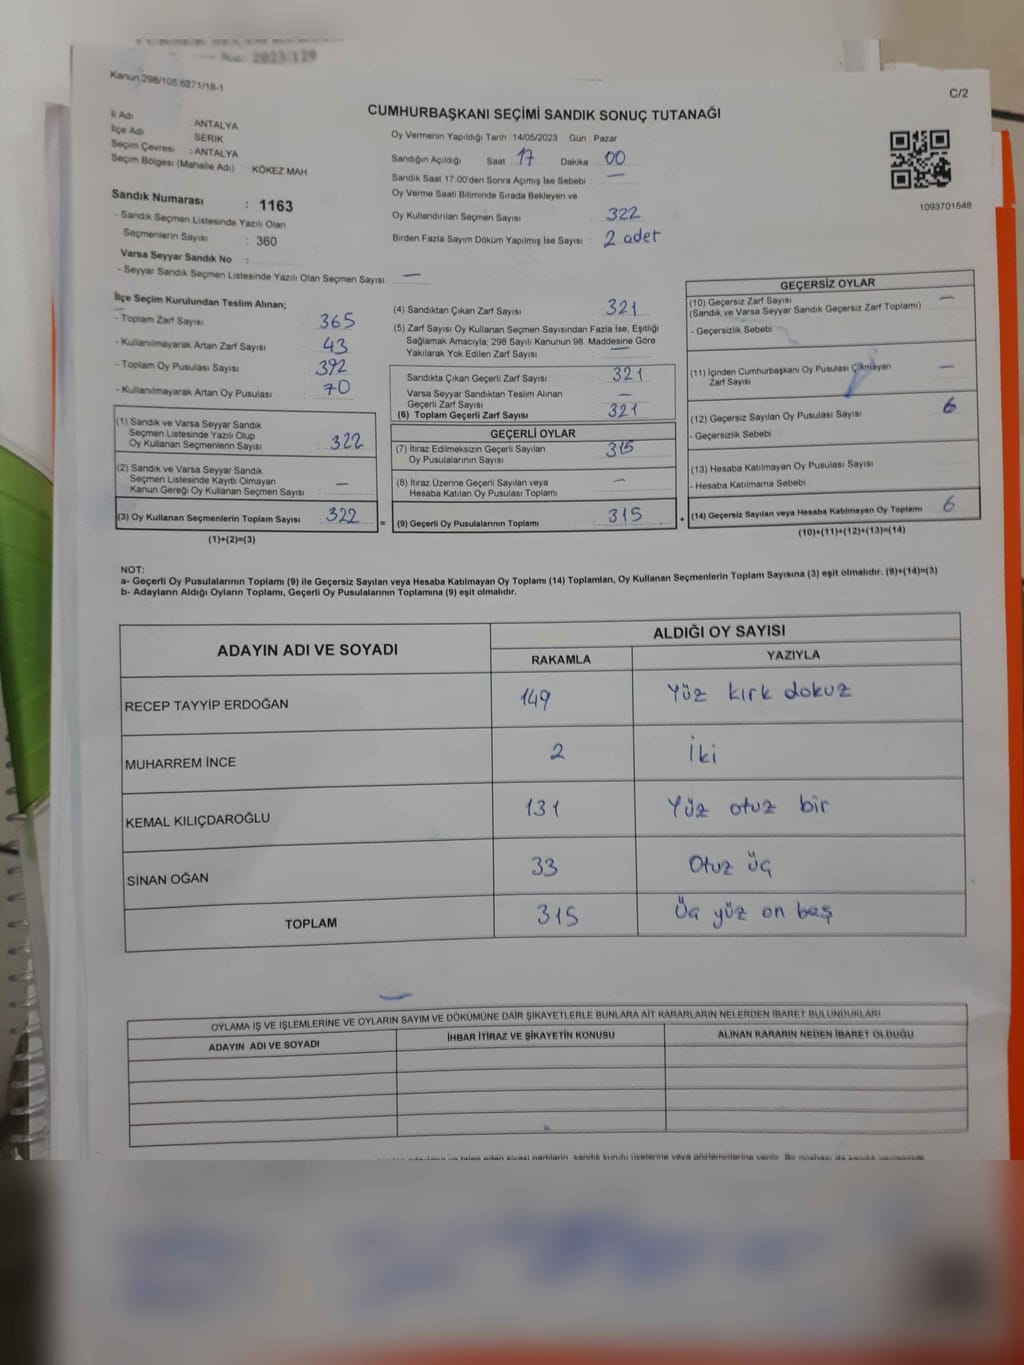 No: 2023/129
Kanun 298/105 6271/18-1
C/2
CUMHURBAŞKANI SEÇİMİ SANDIK SONUÇ TUTANAĞI
İl Adı ANTALYA
İlçe Adı SERİK
Seçim Çevresi : ANTALYA
Seçim Bölgesi (Mahalle Adı) : KÖKEZ MAH
Oy Vermenin Yapıldığı Tarih 14/05/2023 Gün : Pazar
Sandığın Açıldığı Saat 17 Dakika 00
Sandık Saat 17:00'den Sonra Açımış İse Sebebi : —
Oy Verme Saati Bitiminde Sırada Bekleyen ve
Oy Kullandırılan Seçmen Sayısı : 322
Birden Fazla Sayım Döküm Yapılmış İse Sayısı : 2 adet
1093701548
Sandık Numarası : 1163
- Sandık Seçmen Listesinde Yazılı Olan
Seçmenlerin Sayısı : 360
Varsa Seyyar Sandık No :
- Seyyar Sandık Seçmen Listesinde Yazılı Olan Seçmen Sayısı : —
İlçe Seçim Kurulundan Teslim Alınan;
- Toplam Zarf Sayısı : 365
- Kullanılmayarak Artan Zarf Sayısı : 43
- Toplam Oy Pusulası Sayısı : 392
- Kullanılmayarak Artan Oy Pusulası : 70
(1) Sandık ve Varsa Seyyar Sandık
Seçmen Listesinde Yazılı Olup
Oy Kullanan Seçmenlerin Sayısı : 322
(2) Sandık ve Varsa Seyyar Sandık
Seçmen Listesinde Kayıtlı Olmayan
Kanun Gereği Oy Kullanan Seçmen Sayısı : —
(3) Oy Kullanan Seçmenlerin Toplam Sayısı : 322 =
(1)+(2)=(3)
(4) Sandıktan Çıkan Zarf Sayısı : 321
(5) Zarf Sayısı Oy Kullanan Seçmen Sayısından Fazla İse, Eşitliği
Sağlamak Amacıyla; 298 Sayılı Kanunun 98. Maddesine Göre
Yakılarak Yok Edilen Zarf Sayısı : —
Sandıkta Çıkan Geçerli Zarf Sayısı : 321
Varsa Seyyar Sandıktan Teslim Alınan
Geçerli Zarf Sayısı : —
(6) Toplam Geçerli Zarf Sayısı : 321
GEÇERLİ OYLAR
(7) İtiraz Edilmeksizin Geçerli Sayılan : 315
Oy Pusulalarının Sayısı
(8) İtiraz Üzerine Geçerli Sayılan veya : —
Hesaba Katılan Oy Pusulası Toplamı
(9) Geçerli Oy Pusulalarının Toplamı : 315 +
GEÇERSİZ OYLAR
(10) Geçersiz Zarf Sayısı : —
(Sandık ve Varsa Seyyar Sandık Geçersiz Zarf Toplamı)
- Geçersizlik Sebebi :
(11) İçinden Cumhurbaşkanı Oy Pusulası Çıkmayan : —
Zarf Sayısı
(12) Geçersiz Sayılan Oy Pusulası Sayısı : 6
- Geçersizlik Sebebi :
(13) Hesaba Katılmayan Oy Pusulası Sayısı :
- Hesaba Katılmama Sebebi :
(14) Geçersiz Sayılan veya Hesaba Katılmayan Oy Toplamı : 6
(10)+(11)+(12)+(13)=(14)
NOT:
a- Geçerli Oy Pusulalarının Toplamı (9) ile Geçersiz Sayılan veya Hesaba Katılmayan Oy Toplamı (14) Toplamları, Oy Kullanan Seçmenlerin Toplam Sayısına (3) eşit olmalıdır. (9)+(14)=(3)
b- Adayların Aldığı Oyların Toplamı, Geçerli Oy Pusulalarının Toplamına (9) eşit olmalıdır.
ADAYIN ADI VE SOYADI ALDIĞI OY SAYISI
RAKAMLA YAZIYLA
RECEP TAYYİP ERDOĞAN 149 Yüz kırk dokuz
MUHARREM İNCE 2 İki
KEMAL KILIÇDAROĞLU 131 Yüz otuz bir
SİNAN OĞAN 33 Otuz üç
TOPLAM 315 Üç yüz on beş
OYLAMA İŞ VE İŞLEMLERİNE VE OYLARIN SAYIM VE DÖKÜMÜNE DAİR ŞİKAYETLERLE BUNLARA AİT KARARLARIN NELERDEN İBARET BULUNDUKLARI
ADAYIN ADI VE SOYADI İHBAR İTİRAZ VE ŞİKAYETİN KONUSU ALINAN KARARIN NEDEN İBARET OLDUĞU